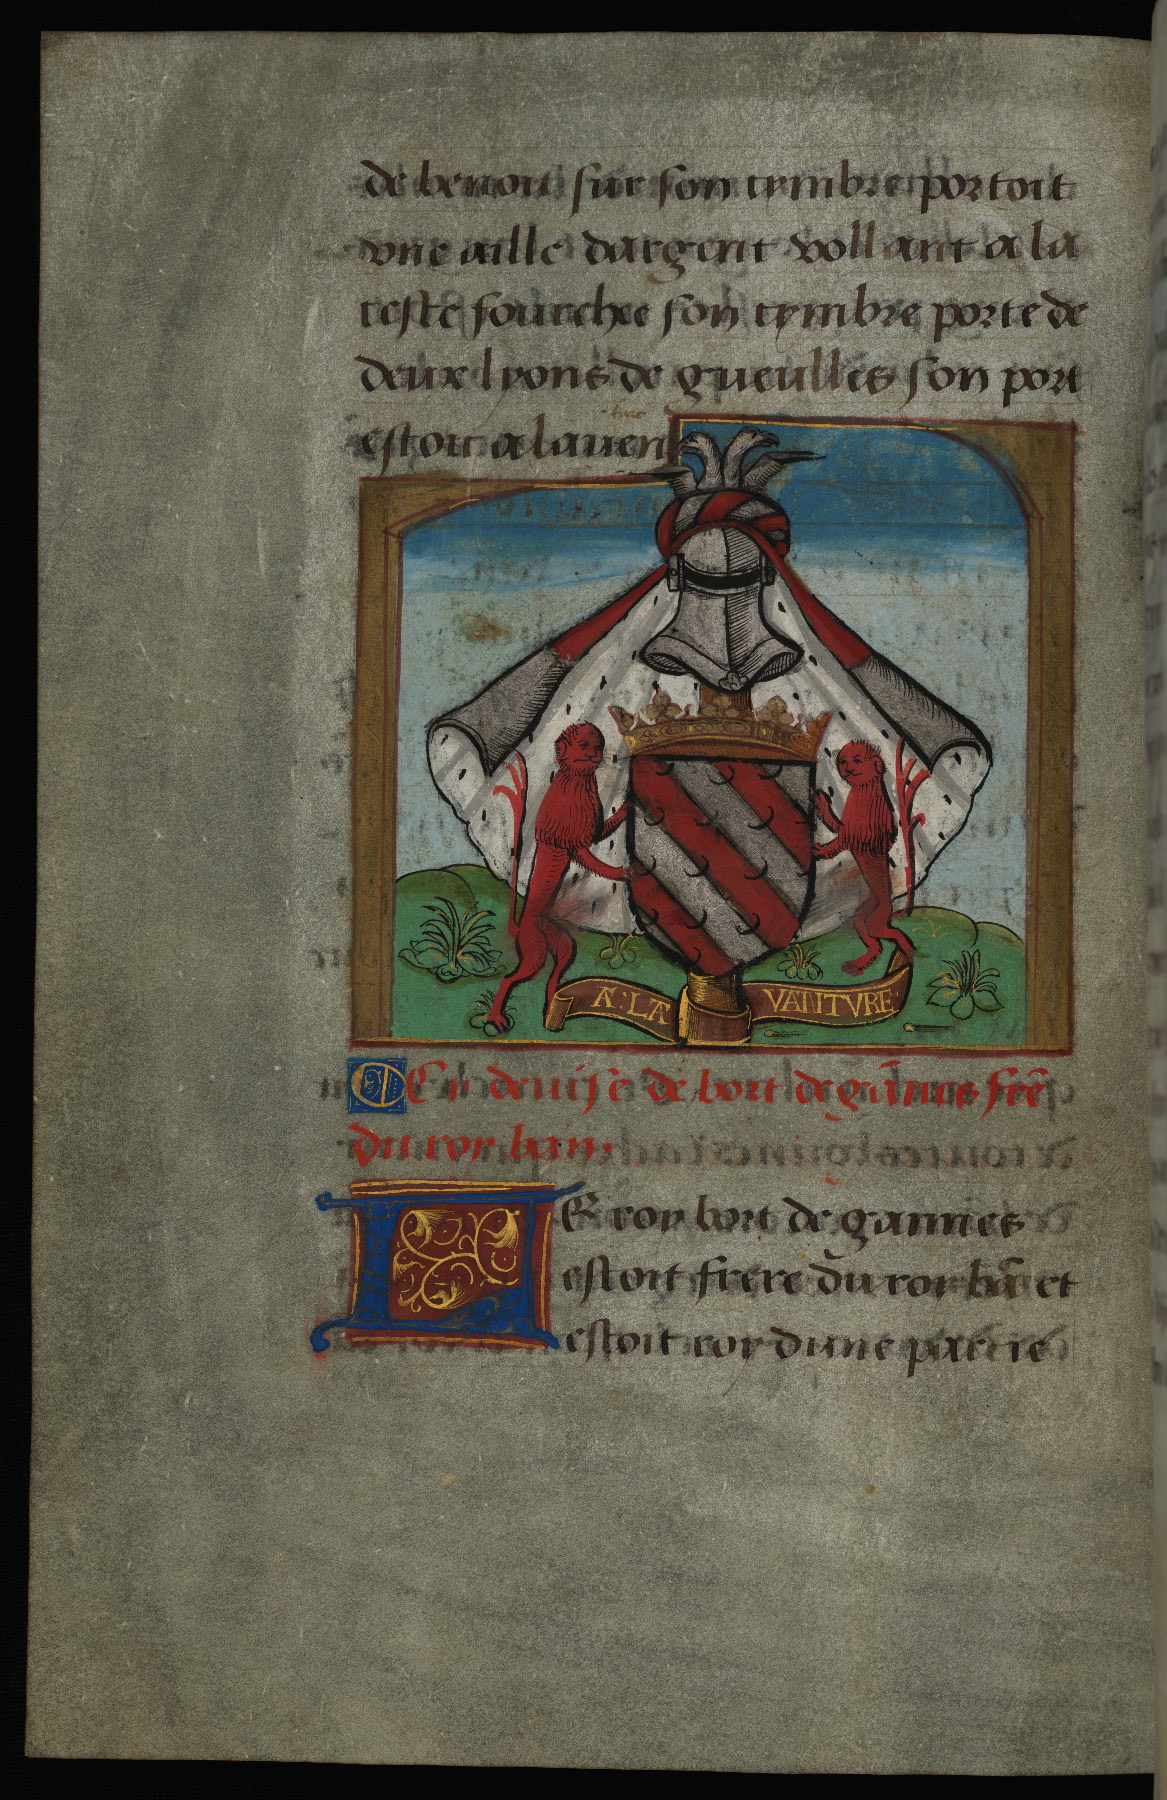 de benoit sur son tymbre portoit
vne aille dargent vollant a la
teste fourchee son tymbre porte de
deux lyons de gueulles son port
estoit a lauen
ture
A: LA VANTVRE
Cy deuise de bort de gãnes frẽ
du roy ban.
LE roy bort de gannes
estoit frere du roy bã et
estoit roy dune partie